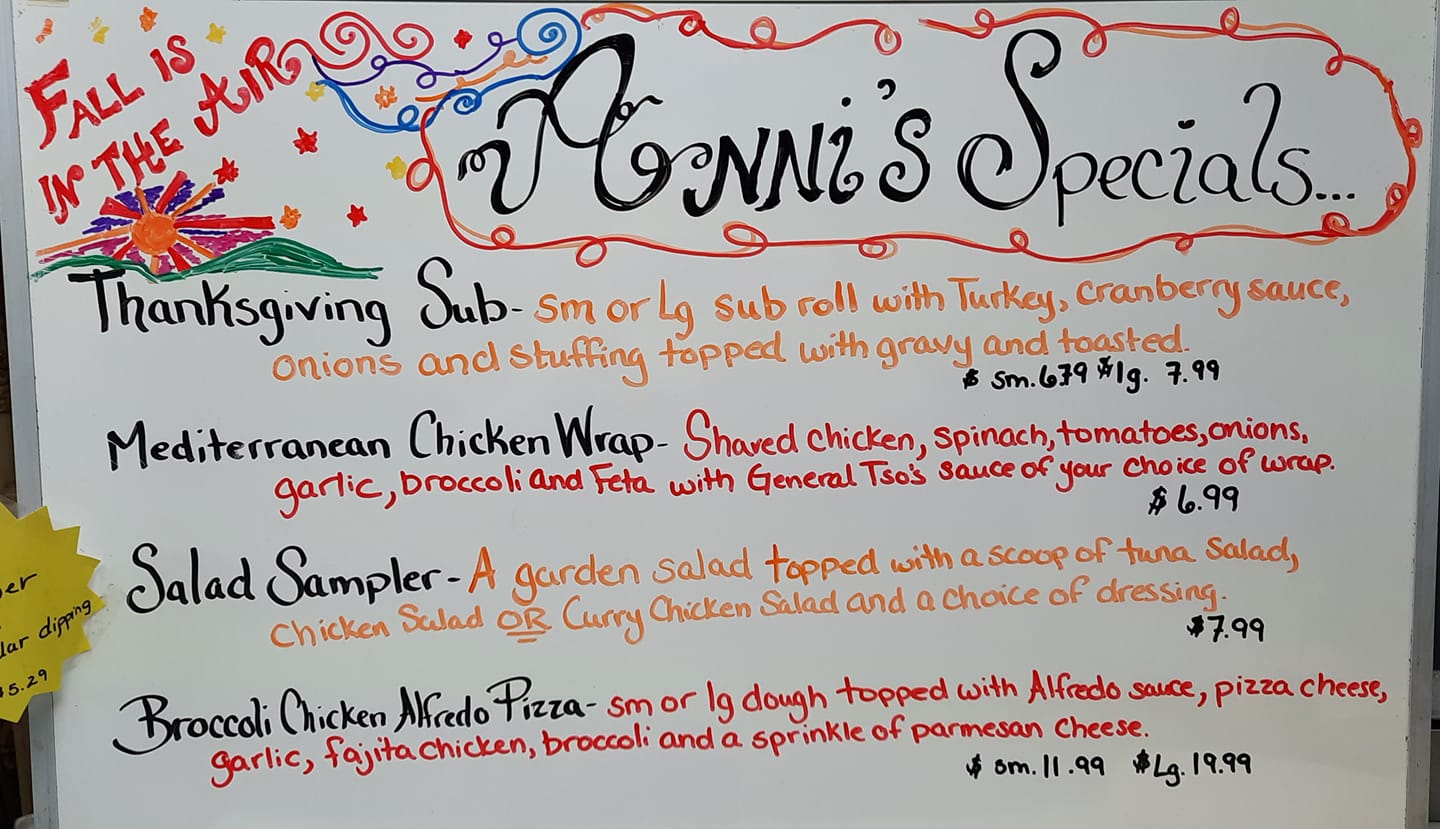 FALL IS
IN THE AIR
Nonni's Specials...
Thanksgiving Sub- Sm or Lg sub roll with Turkey, cranberry sauce,
onions and stuffing topped with gravy and toasted.
$ sm. 679 $lg. 7.99
Mediterranean Chicken Wrap- Shaved chicken, spinach, tomatoes, onions,
garlic, broccoli and Feta with General Tso's sauce of your choice of wrap.
$ 6.99
Salad Sampler- A garden salad topped with a scoop of tuna salad,
Chicken Salad OR Curry Chicken Salad and a choice of dressing.
$7.99
Broccoli Chicken Alfredo Pizza- sm or lg dough topped with Alfredo sauce, pizza cheese,
garlic, fajita chicken, broccoli and a sprinkle of parmesan cheese.
$ sm. 11.99 $Lg. 19.99
dipping
5.29